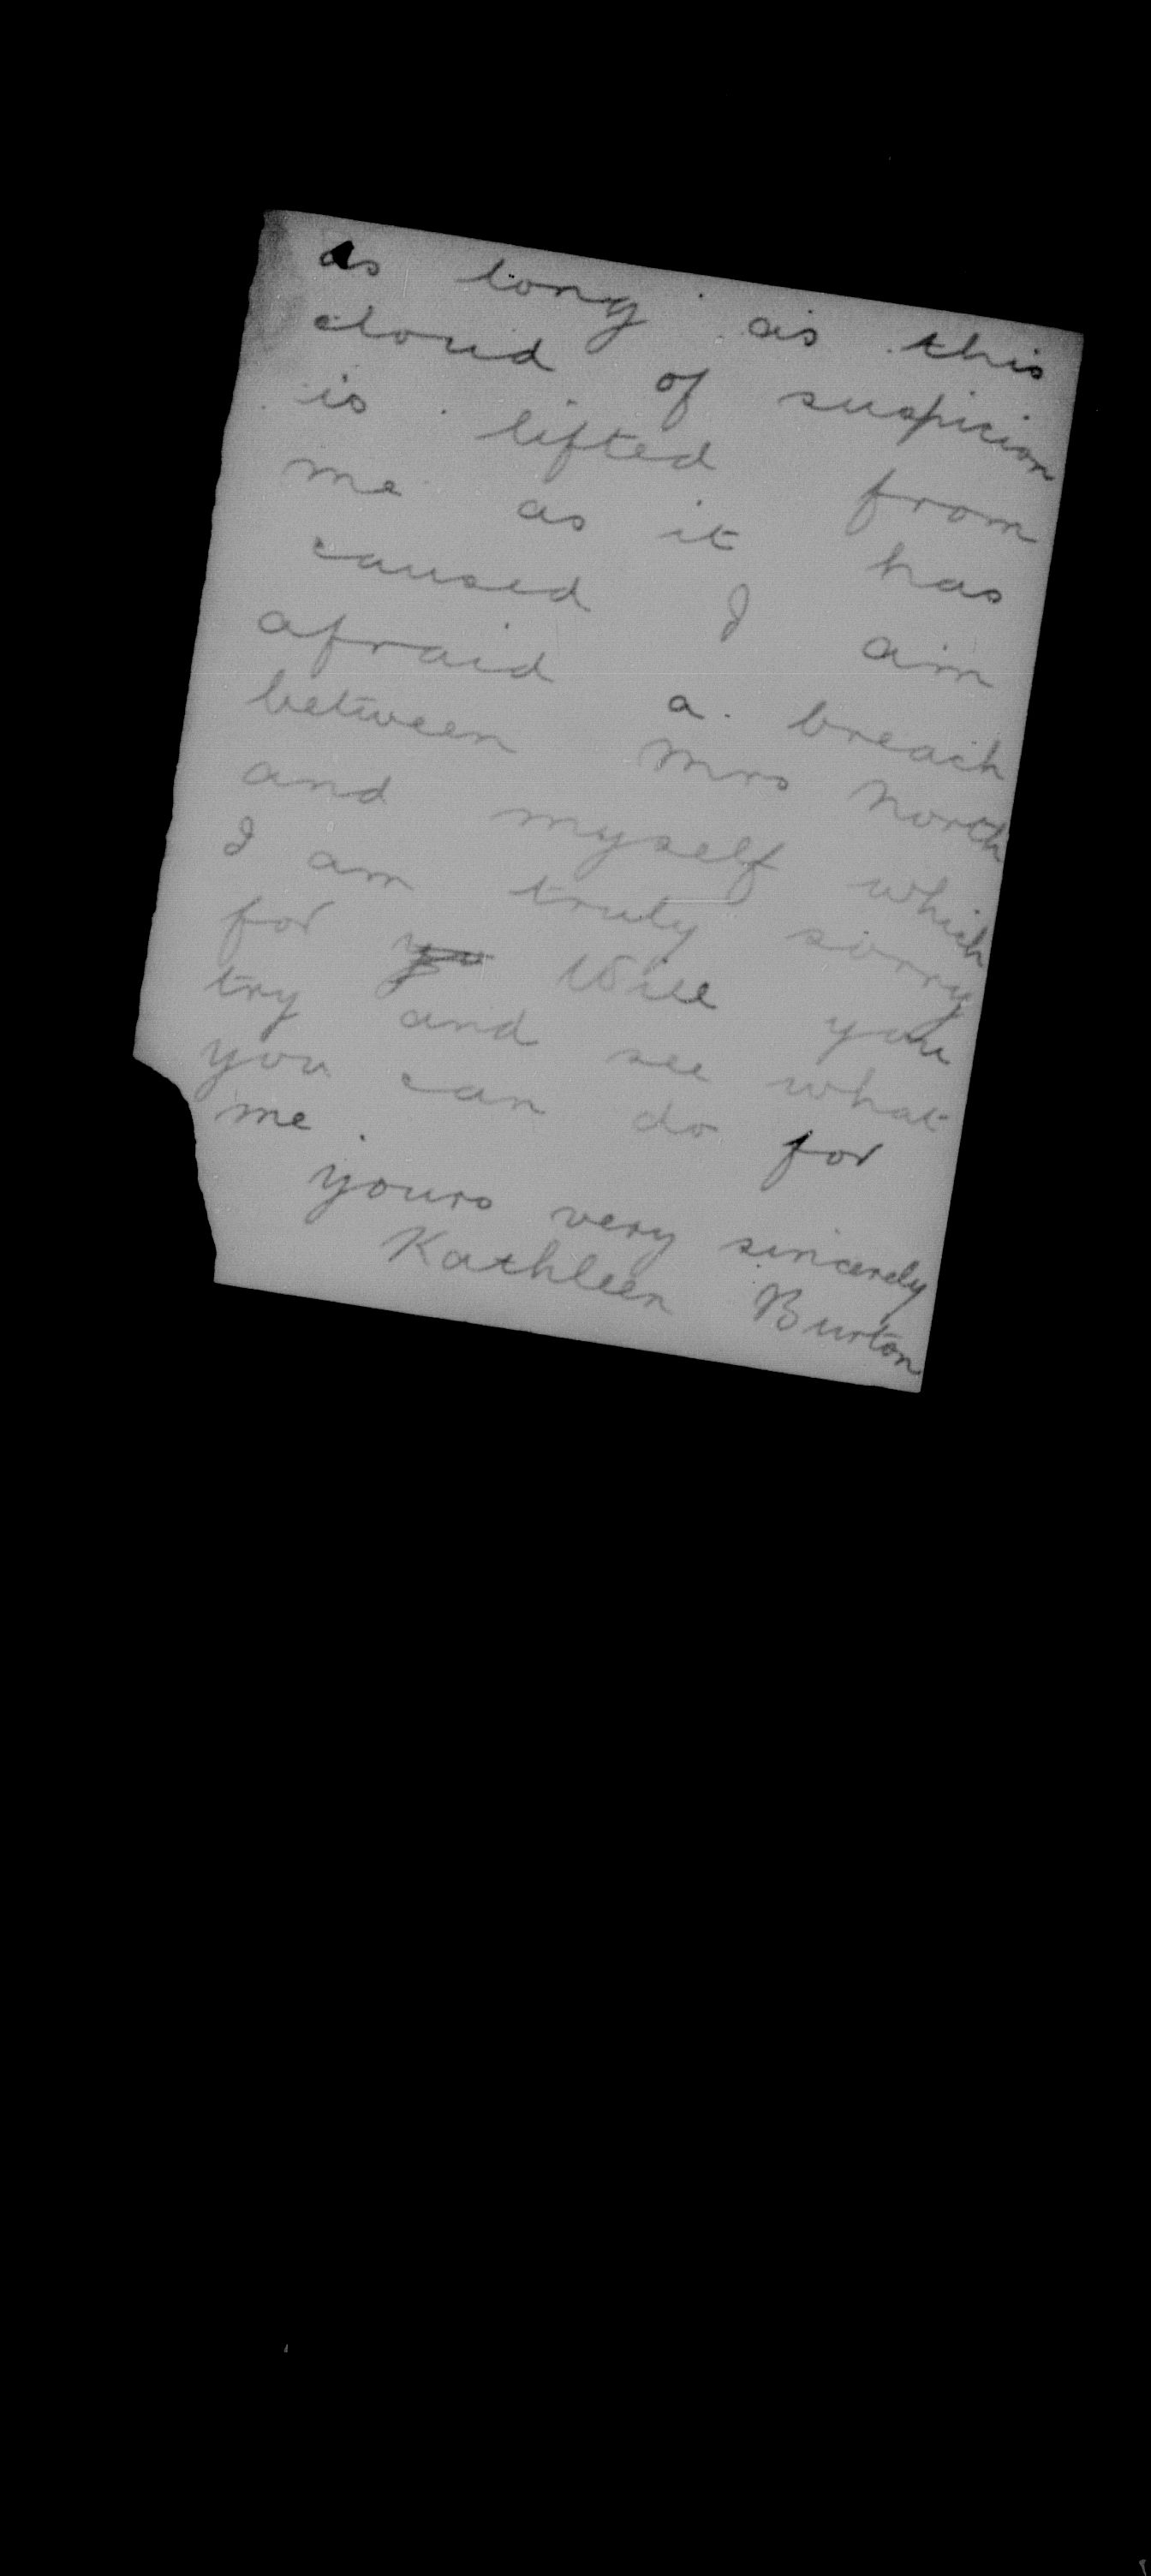 as long as this
cloud of suspicion
is lifted from
me as it has
caused I am
afraid a breach
between Mrs North
and myself which
I am truly sorry
for yu Will you
try and see what
you can do for
me.
yours very sincerely
Kathleen Burton